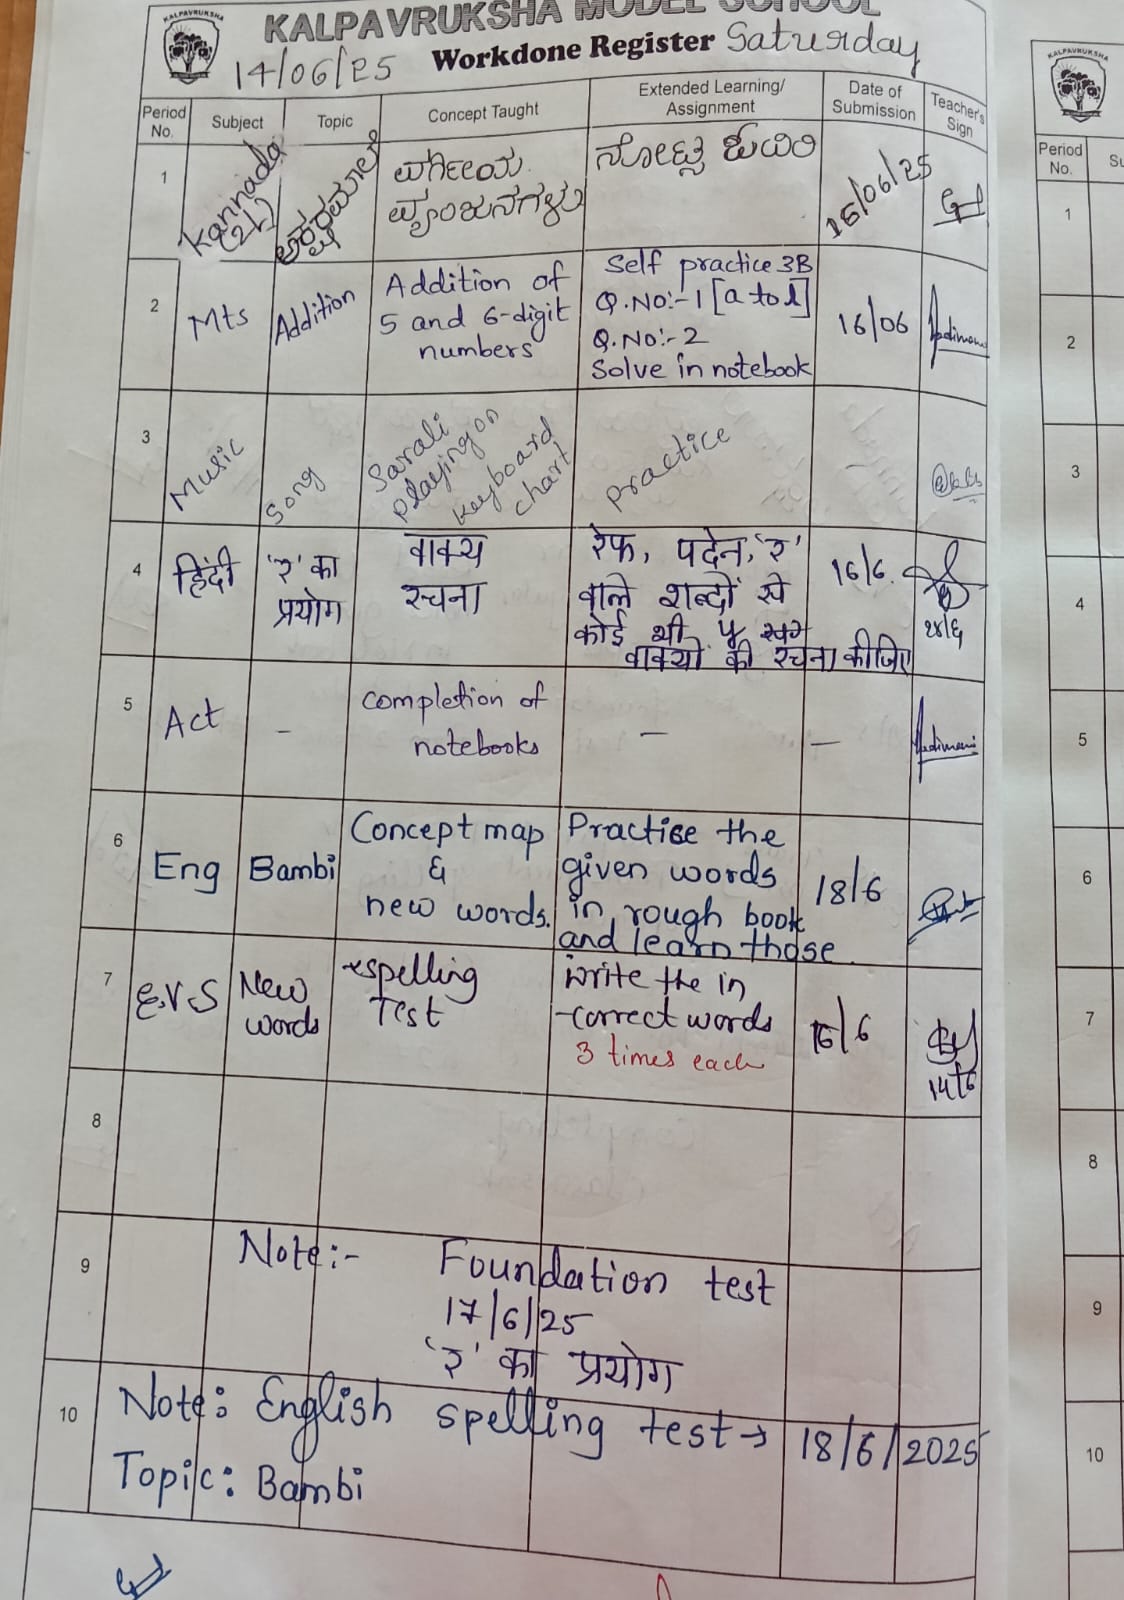 KALPAVRUKSHA MODEL SCHOOL
Workdone Register Saturday
14/06/25
Period No. Subject Topic Concept Taught Extended Learning/ Assignment Date of Submission Teacher's Sign
1 Kannada (2L) ಅಕ್ಷರಮಾಲೆ ವರ್ಗೀಯ
ವ್ಯಂಜನಗಳು
ನೋಟ್ಸ್
16/06/25
2 Mts Addition Addition of
5 and 6-digit
numbers
Self practice 3B
Q.NO:-1 [a to l]
Q.NO:-2
Solve in notebook
16/06
3 Music Song Sarali
playing on
keyboard
chart
practice
4 हिंदी 'र' का
प्रयोग
वाक्य
रचना
रेफ, पदेन, 'र'
वाले शब्दों से
कोई भी
वाक्यों की रचना कीजिए
16/6.
१४/६
5 Act - completion of
notebooks
-
-
6 Eng Bambi Concept map
&
new words.
Practice the
given words
in rough book
and learn those.
18/6
7 E.V.S New
words
*spelling
Test
Write the in
-correct words
3 times each
16/6
14/6
8
9 Note:- Foundation test
17/6/25
'र' का प्रयोग
10 Note: English spelling test→ 18/6/2025
Topic: Bambi
KALPAVRUKSHA
Period No.
1
2
3
4
5
6
7
8
9
10